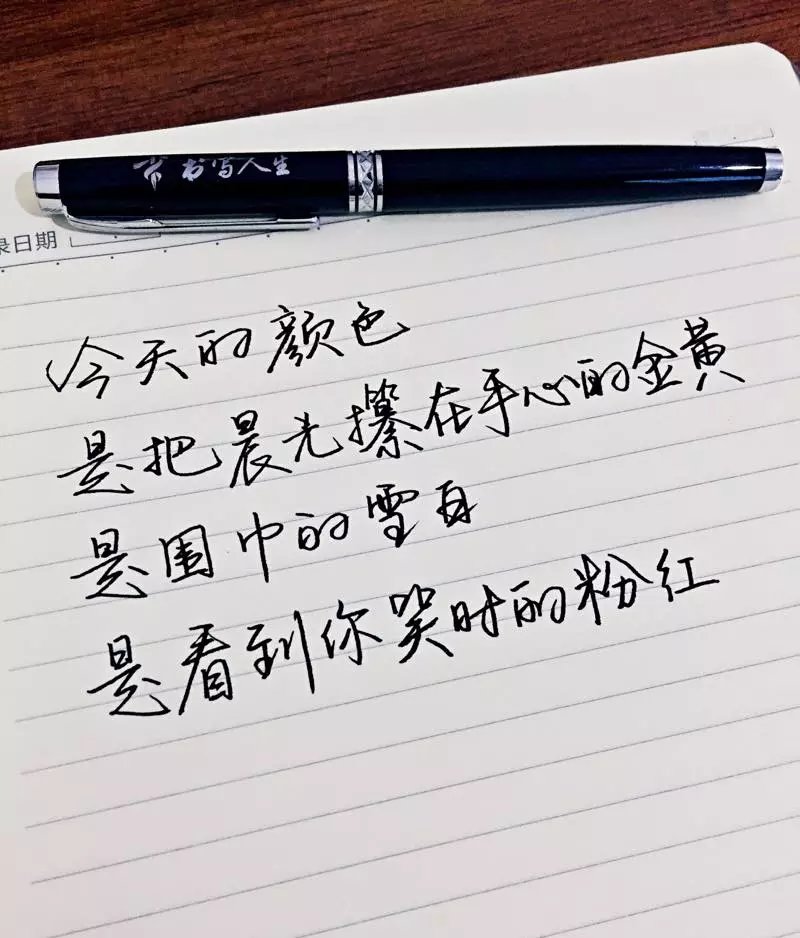 书写人生
录日期
今天的颜色
是把晨光攥在手心的金黄
是围巾的雪白
是看到你笑时的粉红